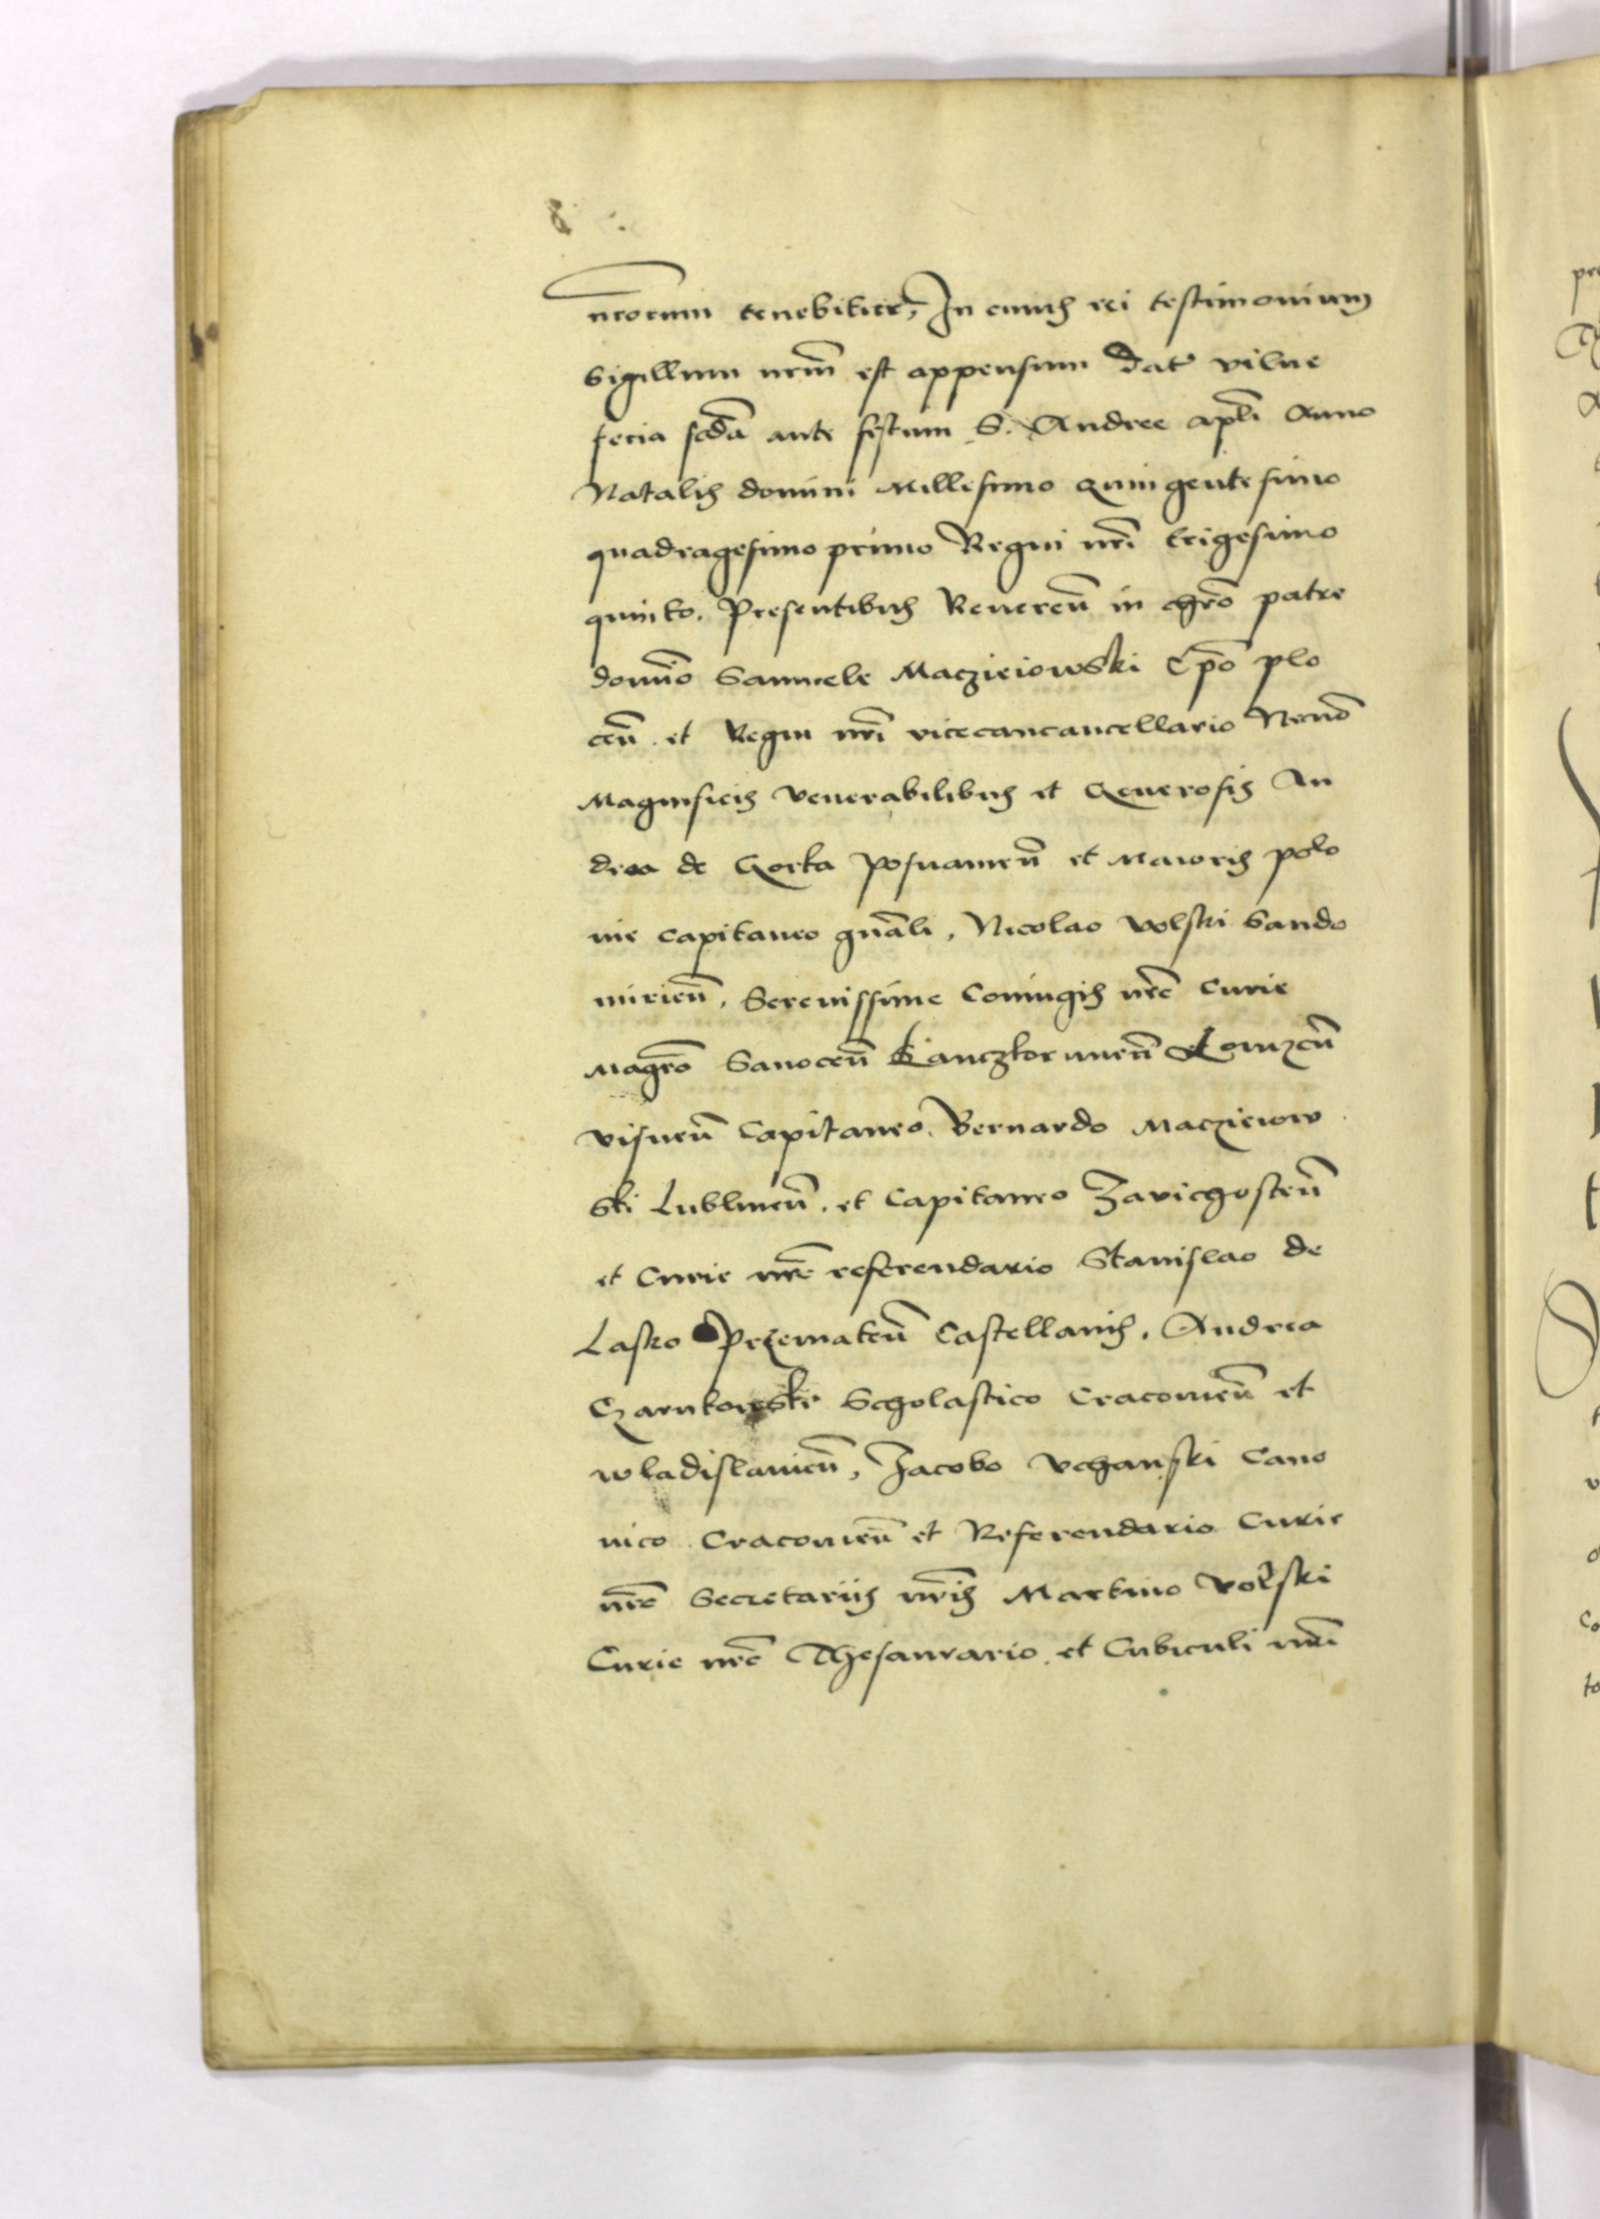 nrorum tenebitur, In cuius rei testimonium
Sigillum nrm̄ est appensum Dat vilne
feria scd̄a ante festum S. Andree apl̄i Anno
Natalis domini Millesimo Quingentesimo
quadragesimo primo Regni nrī trigesimo
quinto. Presentibus Reueren̄ in chrō patre
domīo Samuele Maczieiowski Ep̄o plo
cen̄. et Regni nrī vicecancancellario Necnō
Magnificis venerabilibus et Generosis An
drea de Gorka Posnanien̄ et Maioris polo
nie Capitaneo gnāli, Nicolao Volski Sando
mirien̄. Serenissime Coniugis nrē Curie
Magrō Sanocen̄ Lanczkorunen̄ Lomzen̄
visnen̄ Capitaneo. Bernardo Macziеiow
ski Lublinen̄. et Capitaneo Zavichosten̄
et Curie nrē referendario Stanislao de
Lasko Przematen̄ Castellanis. Andrea
Czarnkowski Scholastico Cracouien̄ et
wladislauien̄, Jacobo Vchanski Cano
nico Cracouien̄ et Referendario Curie
nrē Secretariis nrīs Martino Volski
Curie nrē Thesaurario. et Cubiculi nrī